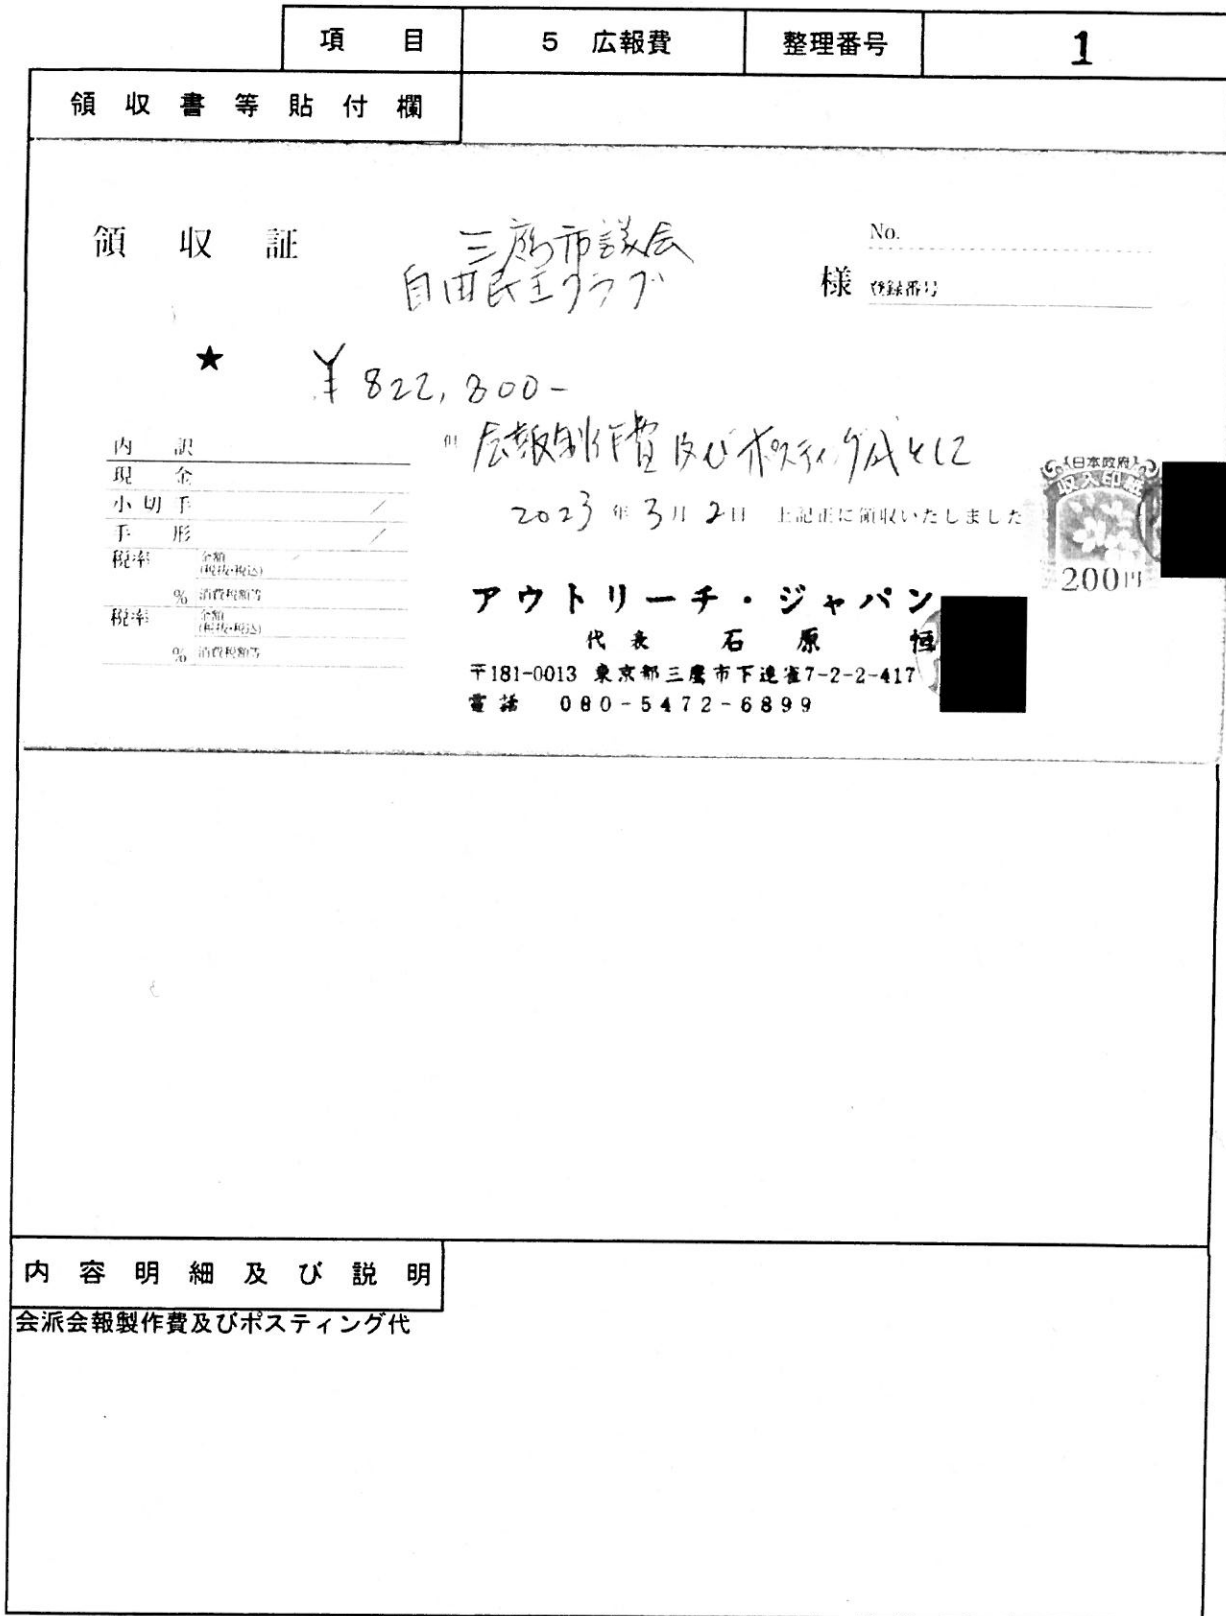 項 目 5 広報費 整理番号 1
領収書等貼付欄
領収証 三鷹市議会 No.
自由民主クラブ 様 登録番号
★ ¥822,800-
内訳 但 会報制作費及びポスティング代として
現金
小切手
手形
2023年3月2日 上記正に領収いたしました
日本政府
収入印紙
200円
税率 金額(税抜・税込)
% 消費税額等
税率 金額(税抜・税込)
% 消費税額等
アウトリーチ・ジャパン
代表 石原 恒
〒181-0013 東京都三鷹市下連雀7-2-2-417
電話 080-5472-6899
内容明細及び説明
会派会報製作費及びポスティング代